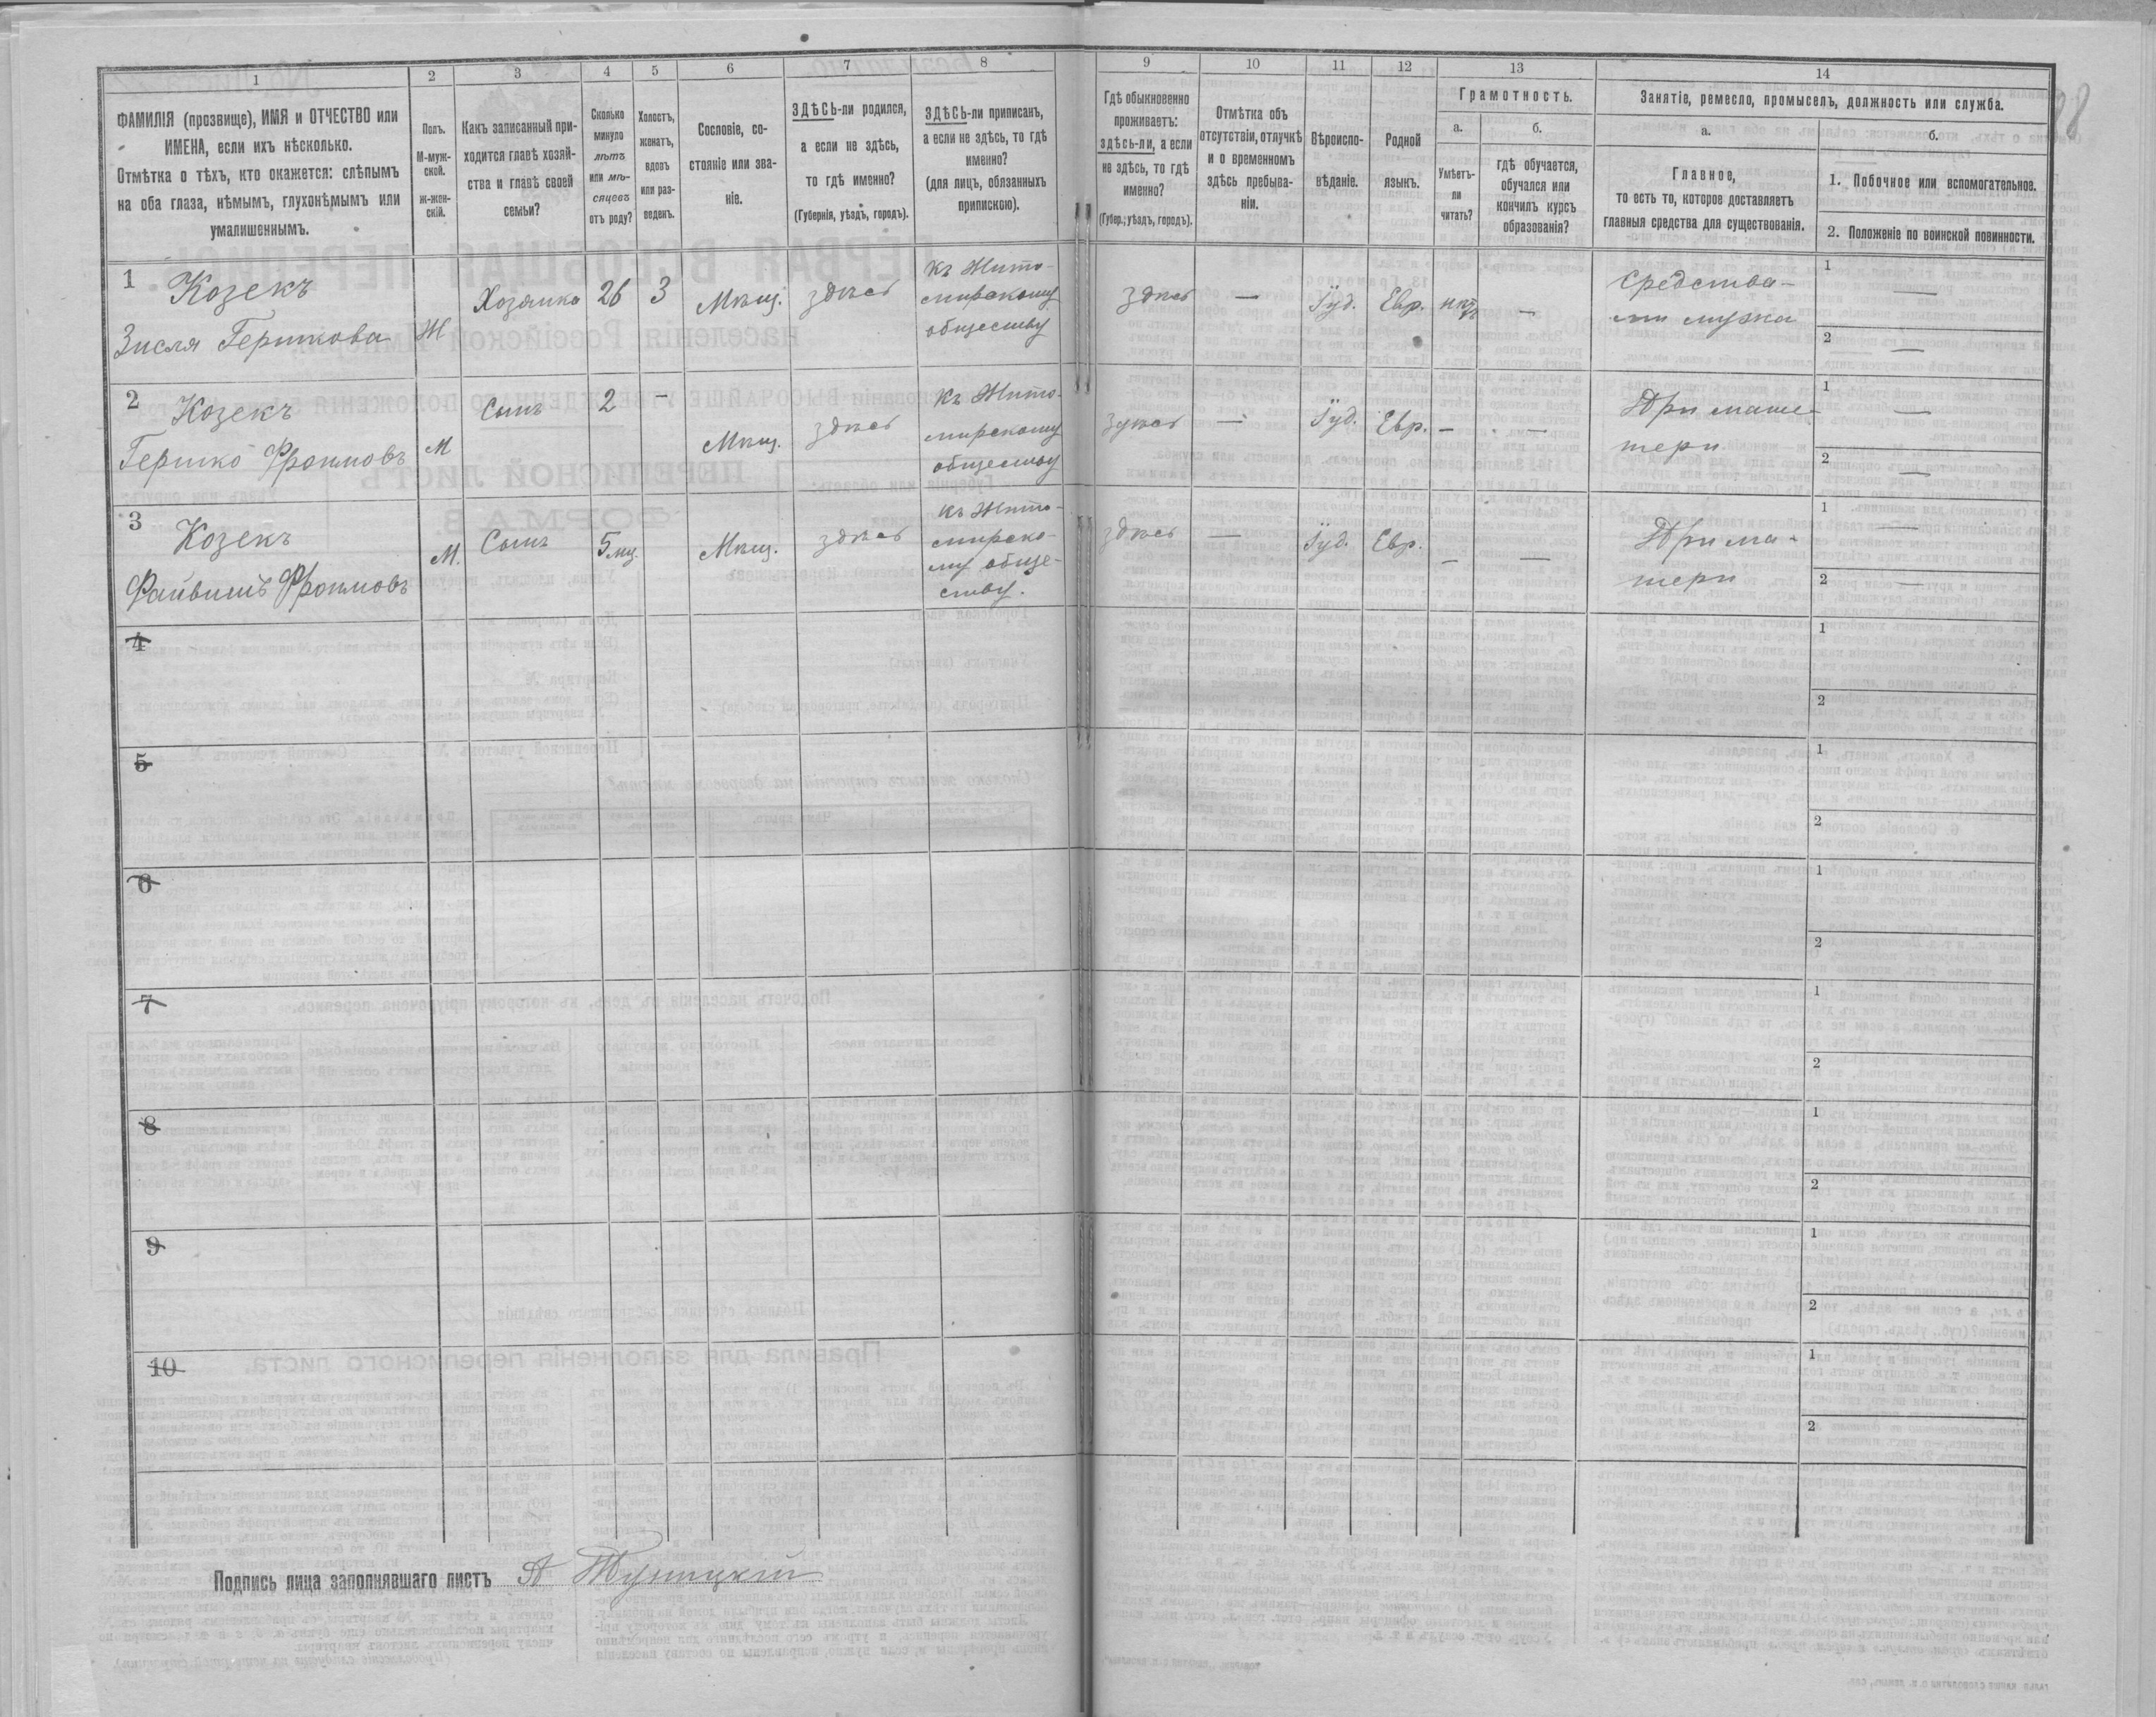 1
ФАМИЛІЯ (прозвище), ИМЯ и ОТЧЕСТВО или
ИМЕНА, если ихъ нѣсколько.
Отмѣтка о тѣхъ, кто окажется: слѣпымъ
на оба глаза, нѣмымъ, глухонѣмымъ или
умалишеннымъ.
2
Полъ.
М-муж-
ской.
ж-жен-
скій.
3
Какъ записанный при-
ходится главѣ хозяй-
ства и главѣ своей
семьи?
4
Сколько
минуло
лѣтъ
или мѣ-
сяцевъ
отъ роду?
5
Холостъ,
женатъ,
вдовъ
или раз-
веденъ.
6
Сословіе, со-
стояніе или зва-
ніе.
7
ЗДѢСЬ-ли родился,
а если не здѣсь,
то гдѣ именно?
(Губернія, уѣздъ, городъ).
8
ЗДѢСЬ-ли приписанъ,
а если не здѣсь, то гдѣ
именно?
(для лицъ, обязанныхъ
припискою).
9
Гдѣ обыкновенно
проживаетъ:
здѣсь-ли, а если
не здѣсь, то гдѣ
именно?
(Губер., уѣздъ, городъ).
10
Отмѣтка объ
отсутствіи, отлучкѣ
и о временномъ
здѣсь пребыва-
ніи.
11
Вѣроиспо-
вѣданіе.
12
Родной
языкъ.
13
Грамотность.
а.
Умѣетъ-
ли
читать?
б.
гдѣ обучается,
обучался или
кончилъ курсъ
образованія?
14
Занятіе, ремесло, промыселъ, должность или служба.
а.
Главное,
то есть то, которое доставляетъ
главныя средства для существованія.
б.
1. Побочное или вспомогательное.
2. Положеніе по воинской повинности.
1
Козекъ
Зисля Гершкова
Ж
Хозяйка
26
З
Мѣщ.
здѣсь
Къ Жито-
мирскому
обществу
здѣсь
—
Іуд.
Евр.
нѣтъ
—
Средства-
ми мужа
1
—
2
—
2
Козекъ
Гершко Фроимовъ
М
Сынъ
2
-
Мѣщ.
здѣсь
Къ Жито-
мирскому
обществу
здѣсь
—
Іуд.
Евр.
-
—
При мате-
тери
1
—
2
—
3
Козекъ
Файвишъ Фроимовъ
М.
Сынъ
5 мц.
Мѣщ.
здѣсь
Къ Жито-
мирско-
му обще-
ству.
здѣсь
—
Іуд.
Евр.
-
—
При ма-
тери
1
—
2
—
4
1
2
5
1
2
6
1
2
7
1
2
8
1
2
9
1
2
10
1
2
Подпись лица заполнявшаго листъ